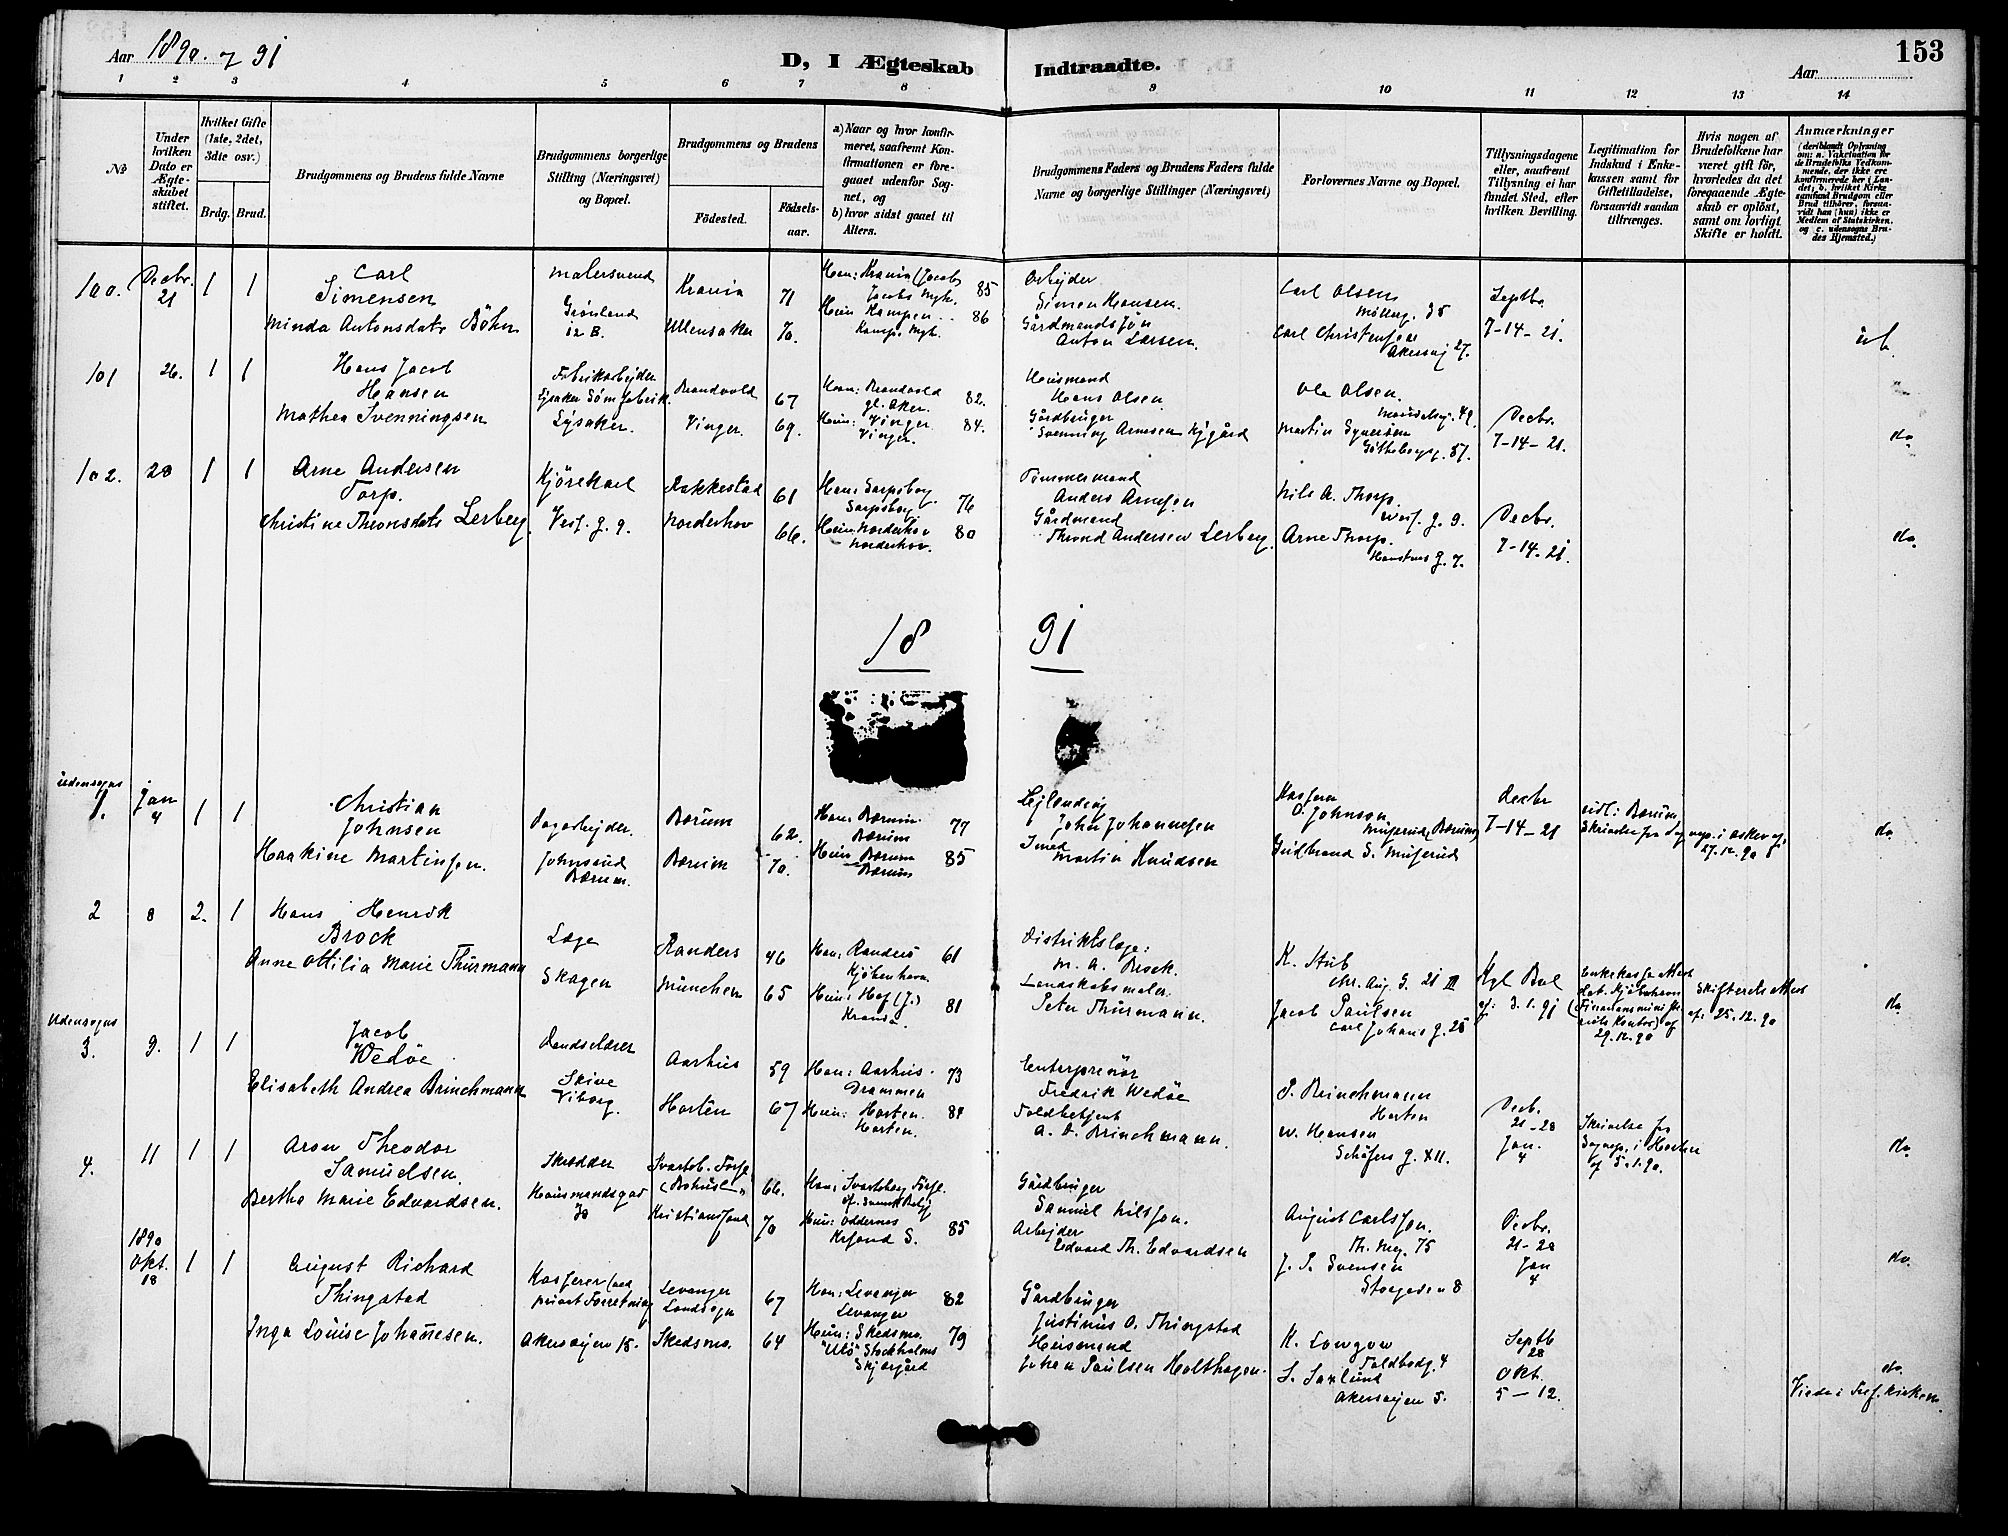 Aar 1890. 91
D, I Ægteskab Indtraadte.
Aar
153
1 2 3 4 5 6 7 8 9 10 11 12 13 14
№
Under hvilken Dato er Ægteskabet stiftet.
Hvilket Gifte (1ste, 2det, 3die osv.)
Brdg. Brud.
Brudgommens og Brudens fulde Navne
Brudgommens borgerlige Stilling (Næringsvei) og Bopæl.
Brudgommens og Brudens
Födested.
Födselsaar.
a) Naar og hvor konfirmeret, saafremt Konfirmationen er foregaaet udenfor Sognet, og
b) hvor sidst gaaet til Alters.
Brudgommens Faders og Brudens Faders fulde Navne og borgerlige Stillinger (Næringsvei)
Forlovernes Navne og Bopæl.
Tillysningsdagene eller, saafremt Tillysning ei har fundet Sted, efter hvilken Bevilling.
Legitimation for Indskud i Enkekassen samt for Giftetilladelse, forsaavidt saadan tiltrænges.
Hvis nogen af Brudefolkene har været gift för, hvorledes da det foregaaende Ægteskab er oplöst, samt om lovligt Skifte er holdt.
Anmærkninger (deriblandt Oplysning om: a. Vakcination for de Brudefolks Vedkommende, der ikke ere konfirmerede her i Landet; b. hvilket Kirkesamfund Brudgom eller Brud tilhörer, forsaavidt han (hun) ikke er Medlem af Statskirken, og c. udensogns Brudes Hjemsted.)
100. Decbr. 21 1 1
Carl Simensen
Minda Antonsdatr Böhn
Malersvend
Grönland 12 B.
Krania 71
Ullensaker 70.
Han: Krania (Jacob) 85
Jacobs Mgh.
Hun Kampen 86
Kamp. Mgh.
Arbejder
Simen Hansen.
Gårdmandsjön
Anton Larsen.
Carl Olsen
Möllerg. 35
Carl Christensen
Akersvej 27.
Septbr.
7-14-21.
101 26. 1 1
Hans Jacob Hansen
Mathea Svenningsen
Fabrikarbejder
Lysaker Sömfabrik.
Lysaker.
Brandvold 67
Vinger. 69.
Han: Brandvold 82.
gl. Aker.
Hun: Vinger 84.
Vinger.
Husmand
Hans Olsen.
Gårdbruger
Svenning Arnesen
Ole Olsen.
Martin Syversen
Götheborgg. 57.
Decbr.
7-14-21.
do
102. 28 1 1
Arne Andersen Torp.
Christine Thronsdatr Lerberg.
Kjörekarl
Vesf. g. 9.
Rakkestad 61
Norderhov 66.
Han: Sarpsborg 76
Sarpsborg.
Hun Norderhov 80
Norderhov.
Tömmermand
Anders Arnesen
Gårdmand
Thrond Andersen Lerberg.
Nils A. Thorp
Vesf. g. 9.
Arne Thorp.
Decbr.
7-14-21.
do.
18 91
Udensogns
1. Jan 4 1 1
Christian Johnsen
Haakine Martinsen.
Dagarbejder.
Johnsrud
Bærum.
Bærum 62.
Bærum 70.
Han: Bærum 77
Bærum
Hun Bærum 85
Bærum
Lejlending
John Johannesen
Smed
Martin Knudsen
Kasserer
O. Johnsen
Muserud, Bærum
Gudbrand S. Muserud
Decbr
7-14-21
udl: Bærum
Skrivelse fra Sognep. i Asker af
27.12.90
do
2 8 2. 1
Hans Henrik Brock
Anne Ottilia Marie Thurmann
Læge
Skagen
Randers 46
München 65
Han: Randers 61
Kjöbenhavn
Hun: Hof (J.) 81
Krania.
Distriktslæge:
M. A. Brock.
Landskabsmaler.
Peter Thurmann.
K. Stub
Chr. Aug. G. 21 III
Jacob Paulsen
Carl Johans g. 25
Kgl Bev
af 3.1.91
Enkekasse Attest
dat. Kjöbenhavn
29.12.90
Skifteretsattest
af 25.12.90
do
Udensogns
3. 9. 1 1
Jacob Wedöe
Elisabeth Andrea Brinchmann
Dandselærer
Skive
Viborg.
Aarhus 59
Horten 67
Han: Aarhus. 73
Drammen
Hun: Horten. 84
Horten.
Enterprenör
Fredrik Wedöe
Toldbetjent
A. D. Brinchmann.
P. Brinchmann
Horten
W. Hansen
Decb.
21-28
Jan.
4
Skrivelse fra
Sognep. i Horten
af 5.1.90.
do.
4. 11 1 1
Aron Theodor Samuelsen.
Bertha Marie Edvardsen.
Skrædder
Hausmandsgad
Svarteb. Forsl.
(Bohuslen) 66.
Kristianssand 70
Han: Svarteborg Forsl.
Hun: Oddernes 85
Krsand S.
Gårdbruger
Samuel Nilsson.
Arbejder
Edvard Th. Edvardsen
August Carlsson.
Th. Mey. 75
J. P. Svensen
Storgaden 8
Decbr.
21-28
Jan
4
do.
1890
Okt.
18 1 1
August Richard Thingstad
Inga Louise Johannesen.
Kasserer (ved
privat Forretning
Akersvejen 18.
Levanger
Landsogn 67
Skedsmo. 64
Han: Levanger 82
Levanger
Hun: Skedsmo. 79
"Utö" Stockholms
Skjærgård
Gårdbruger
Justinus O. Thingstad
Husmand
Johan Paulsen Holthagen.
K. Lowzow
Toldbodg. 4
S. Saxlund
Akersvejen 5.
Septb
28
Okt.
5-12.
do.
Viede i Tref. kirken.